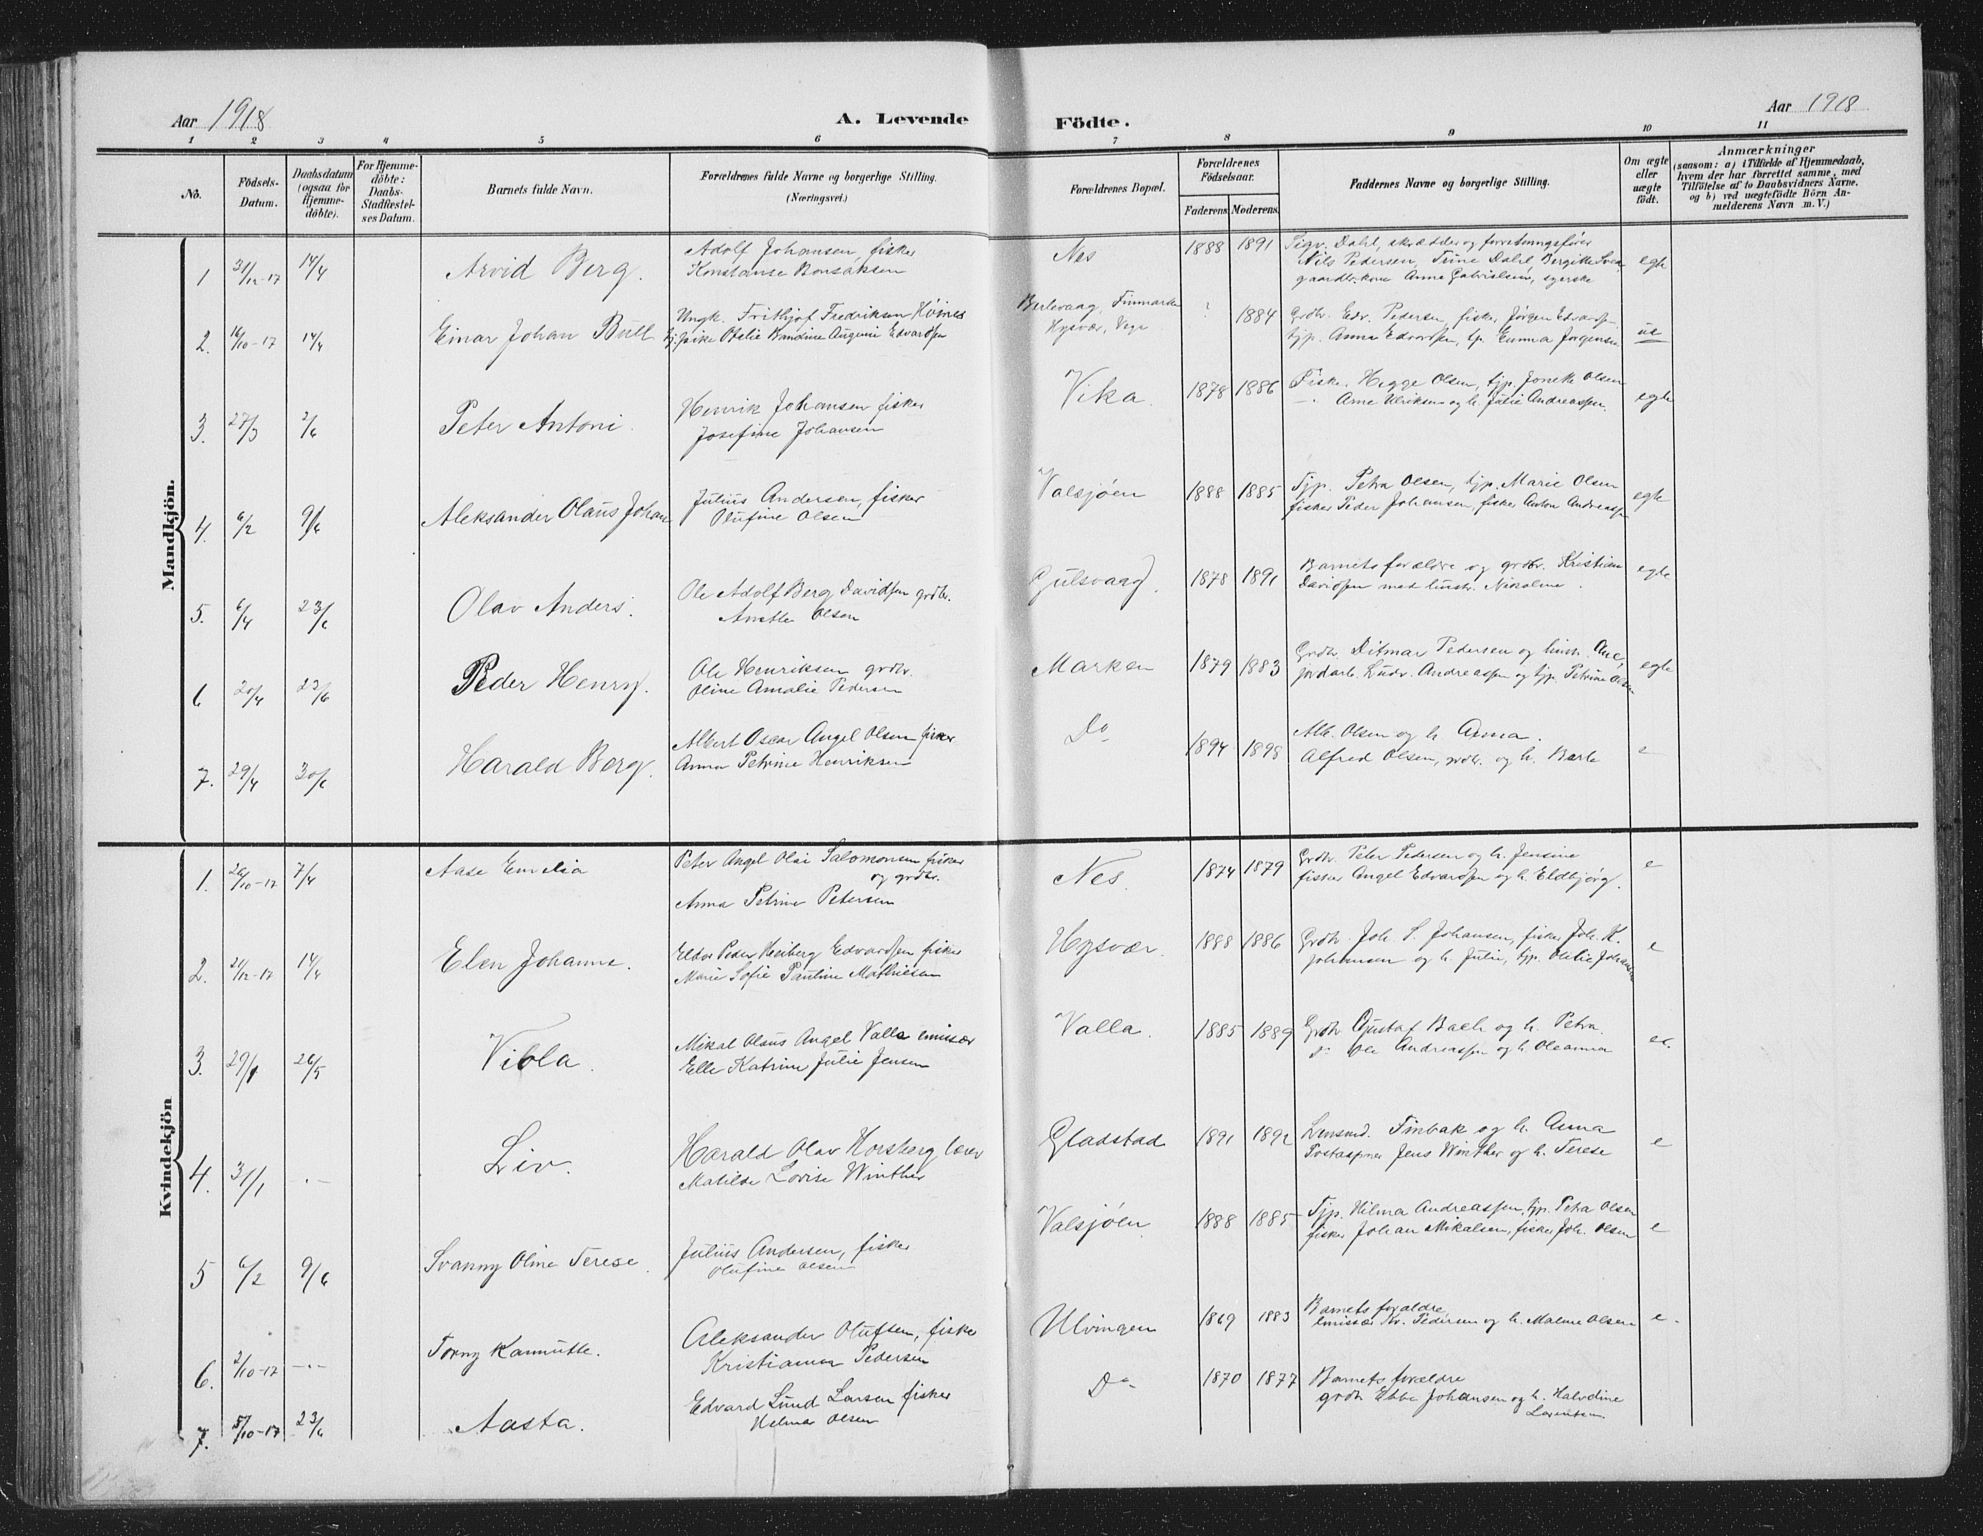 Aar 1918
A. Levende Födte.
Aar 1918
1 2 3 4 5 6 7 8 9 10 11
No.
Födsels-Datum.
Daabsdatum (ogsaa for Hjemme-döbte).
For Hjemme-döbte: Daabs-Stadfæstel-ses Datum.
Barnets fulde Navn.
Forældrenes fulde Navne og borgerlige Stilling.
(Næringsvei.)
Forældrenes Bopæl.
Forældrenes Födselsaar.
Faderens. Moderens.
Faddernes Navne og borgerlige Stilling.
Om ægte eller uægte födt.
Anmærkninger
(saasom: a) i Tilfælde af Hjemmedaab,
hvem der har forrettet samme, med
Tilföielse af to Daabsvidners Navne.
og b) ved uægtefödte Börn An-
melderens Navn m. V.)
Mandkjön.
1 31/12-17 14/4 Arvid Berg. Adolf Johansen, fisker Nes 1888 1891 Sigv. Dahl, skrædder og forretningsfører egte
Konstanse Bonsaksen Nils Pedersen, Trine Dahl Bergitte
gaardbr.kone Anna Gabrielsen, syerske
2. 16/10-17 14/4 Einar Johan Bull Ungk. Frithjof Fredriksen Høines Berlevaag, Finmarken ? 1884 Grdbr. Edv. Pedersen, fisker Jørgen Edvardsen ue
pike Otelie Kandine Augenie Edvardsen Hysvær, Vega tjp. Anna Edvardsen, tp. Emma Jørgensen
3. 27/3 2/6 Peter Antoni. Henrik Johansen fisker Vika. 1878 1886 Fisker Hegge Olsen, tjp. Jonette Olsen egte
Josefine Johansen Arne Ulriksen og h. Julie Andreassen.
4. 6/2 9/6 Aleksander Olaus Johan Julius Andersen, fisker Valsjøen 1888 1885 Tjp. Petra Olsen, tjp. Marie Olsen egte
Olufine Olsen fisker Peder Johansen, fisker Anton Andreassen
5. 6/4 23/6 Olav Anders. Ole Adolf Berg Davidsen grdbr. Gulsvaag. 1878 1891 Barnets forældre og grdbr. Kristian egte
Anette Olsen Davidsen med hustr. Nikoline.
6 20/4 23/6 Peder Henry. Ole Henriksen grdbr. Marken 1879 1883 Grdbr. Ditmar Pedersen og hustr. Ane, egte
Oline Amalie Pedersen jordarb. Ludv. Andreassen og tjp. Petrine Olsen
7. 29/4 30/6 Harald Berg. Albert Oscar Angel Olsen fisker Do 1894 1898 Alb. Olsen og h. Anna. e
Anna Petrine Henriksen Alfred Olsen, grdbr. og h. Berle
Kvindekjön
1. 26/10-17 7/4 Aase Emelia Peter Angel Olai Salomonsen fisker Nes. 1874 1879 Grdbr. Peter Pedersen og h. Jensine e
og grdbr. fisker Angel Edvardsen og h. Eldbjørg.
Anna Petrine Petersen
2. 21/12-17 14/4 Elen Johanne. Eldor Peder Heiberg Edvardsen fisker Hysvær. 1888 1886 Grdbr. Joh. S. Johansen, fisker Joh. K. e
Marie Sofie Pauline Mathiesen Johansen og h. Julie, tjp. Otelie Johansen
3. 29/1 26/5 Viola. Mikal Olaus Angel Valla emissær Valla. 1885 1889 Grdbr Gustaf Bach og h. Petra.
Elle Katrine Julie Jensen do Ole Andreassen og h. Oleanna
4. 31/1 -.- Liv. Harald Olav Horsberg lærer Gladstad 1891 1892 Lensmd. Finbak og h. Anna e
Matilde Lovise Winther Postaapner Jens Winther og h. Terese
5 6/2 9/6 Svanny Oline Terese. Julius Andersen, fisker Valsjøen. 1888 1885 Tjp. Hilma Andreassen, tjp. Petra Olsen e
Olufine Olsen fisker Johan Mikalsen, fisker Joh. Olsen
6. 2/10-17 -.- Torny Kamutte. Aleksander Olufsen, fisker Ulvingen 1869 1883 Barnets forældre, e.
Kristianna Pedersen emissær Kr. Pedersen og h. Malene Olsen
7. 5/10-17 23/6 Aasta. Edvard Lund Larsen fisker Do 1870 1877 Barnets forældre
Helma Olsen grdbr Ebbe Johansen og h. Halvdine
Lorentsen